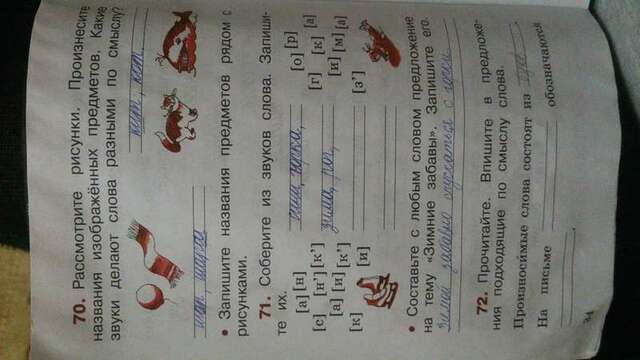 70. Рассмотрите рисунки. Произнесите
названия изображённых предметов. Какие
звуки делают слова разными по смыслу?
кит, кот.
• Запишите названия предметов рядом с
рисунками.
71. Соберите из звуков слова. Запиши-
те их.
[а] [н] [о] [р]
[с] [н'] [к'] [г] [к] [а]
[а] [и] [к'] [и] [м] [а]
[к] [и] [з']
зима,
• Составьте с любым словом предложение
на тему «Зимние забавы». Запишите его.
забавы с горки
72. Прочитайте. Впишите в предложе-
ния подходящие по смыслу слова.
Произносимые слова состоят из
На письме обозначаются